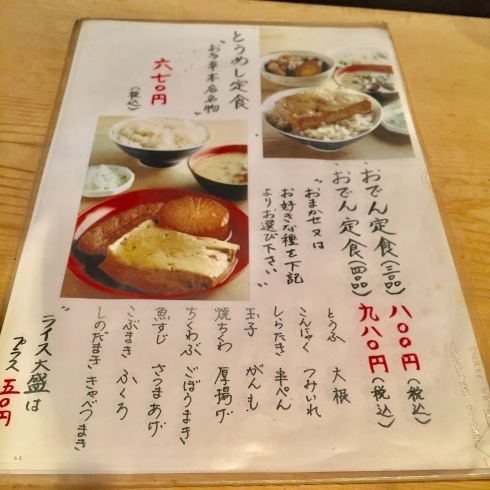 とうめし定食
"お多幸本店名物"
六七〇円(税込)
おでん定食(三品) 八〇〇円(税込)
おでん定食(四品) 九八〇円(税込)
"おまかせ又は
お好きな種を下記
よりお選び下さい"
とうふ 大根
こんにゃく つみいれ
しらたき 半ぺん
玉子 がんも
焼ちくわ 厚揚げ
ちくわぶ ごぼうまき
魚すじ さつまあげ
こぶまき ふくろ
しのだまき きゃべつまき
"ライス大盛は
プラス 五〇円